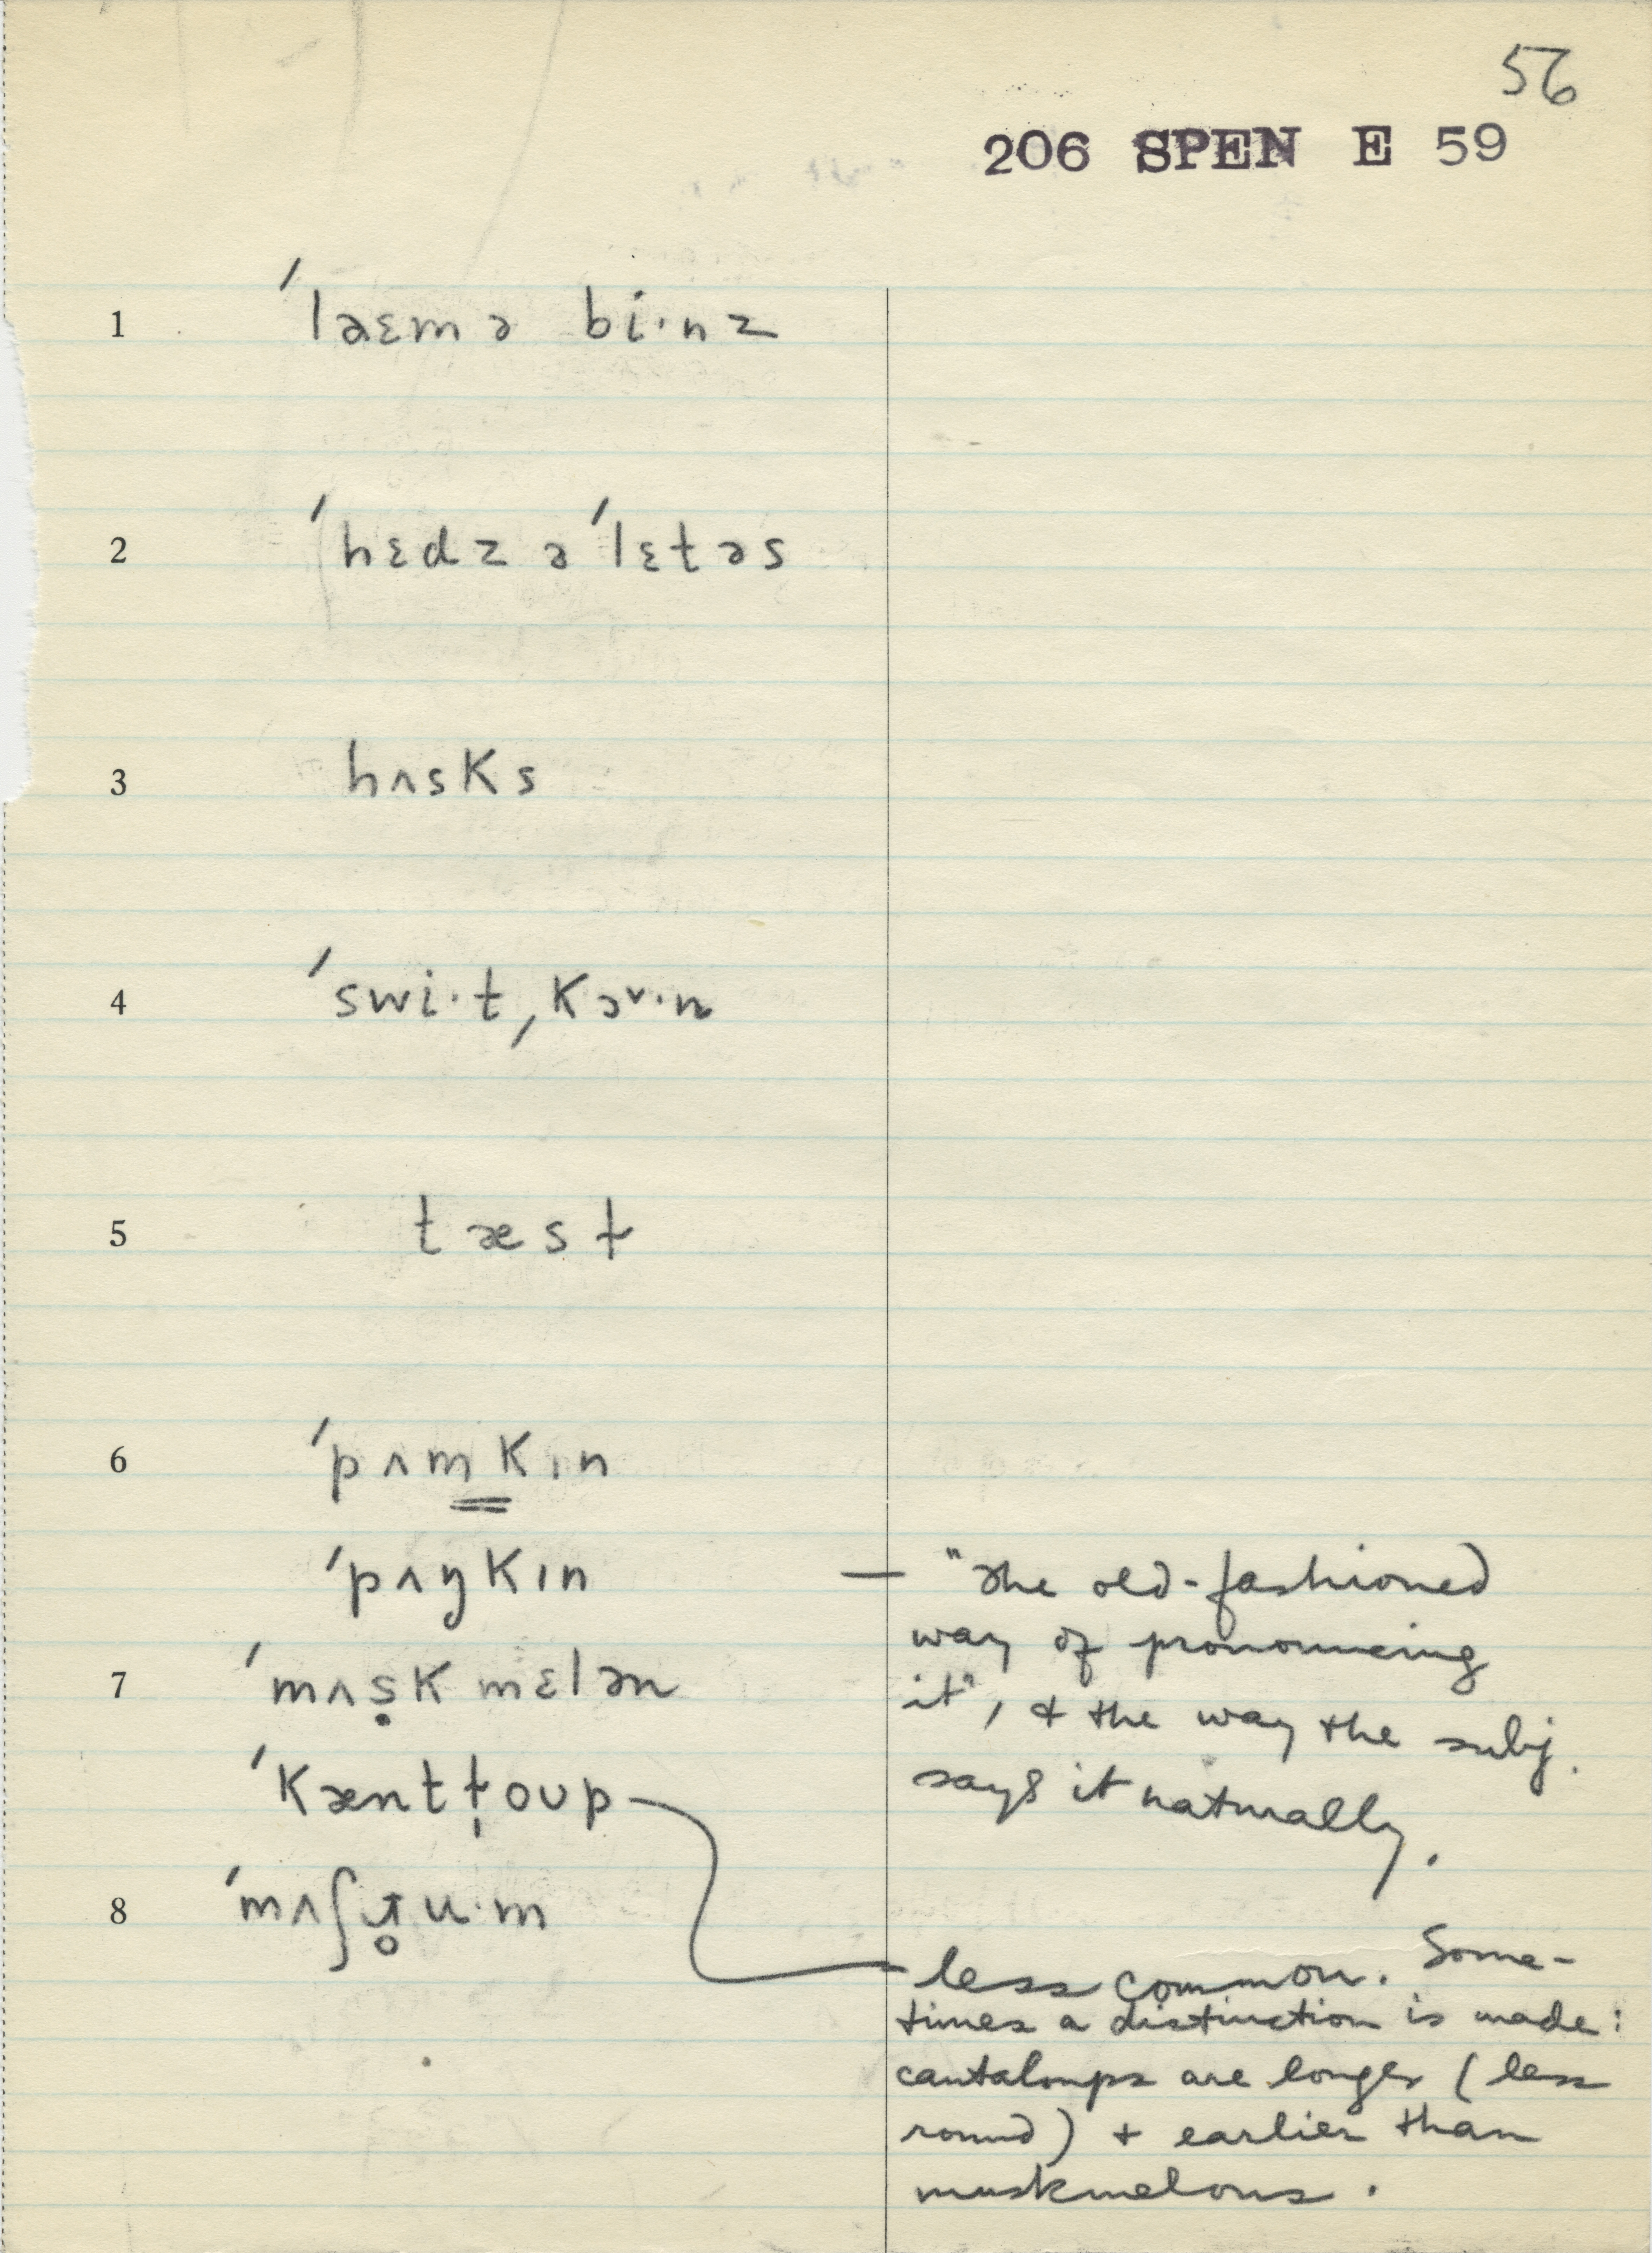 56
206 SPEN E 59
1 ˈlæɛmə bi·nz
2 ˈhɛdz əˈlɛtəs
3 hʌsks
4 ˈswi·tˌkɔ˅·n
5 tæsɫ
6 ˈpʌmkɪn
ˈpʌŋkɪn — "The old-fashioned
way of pronouncing
it", & the way the subj.
says it naturally.
7 ˈmʌṣkmɛlən
ˈkæntɫ̩oup
8 ˈmʌʃru·m
less common. Some-
times a distinction is made:
cantaloups are longer (less
round) + earlier than
muskmelons.